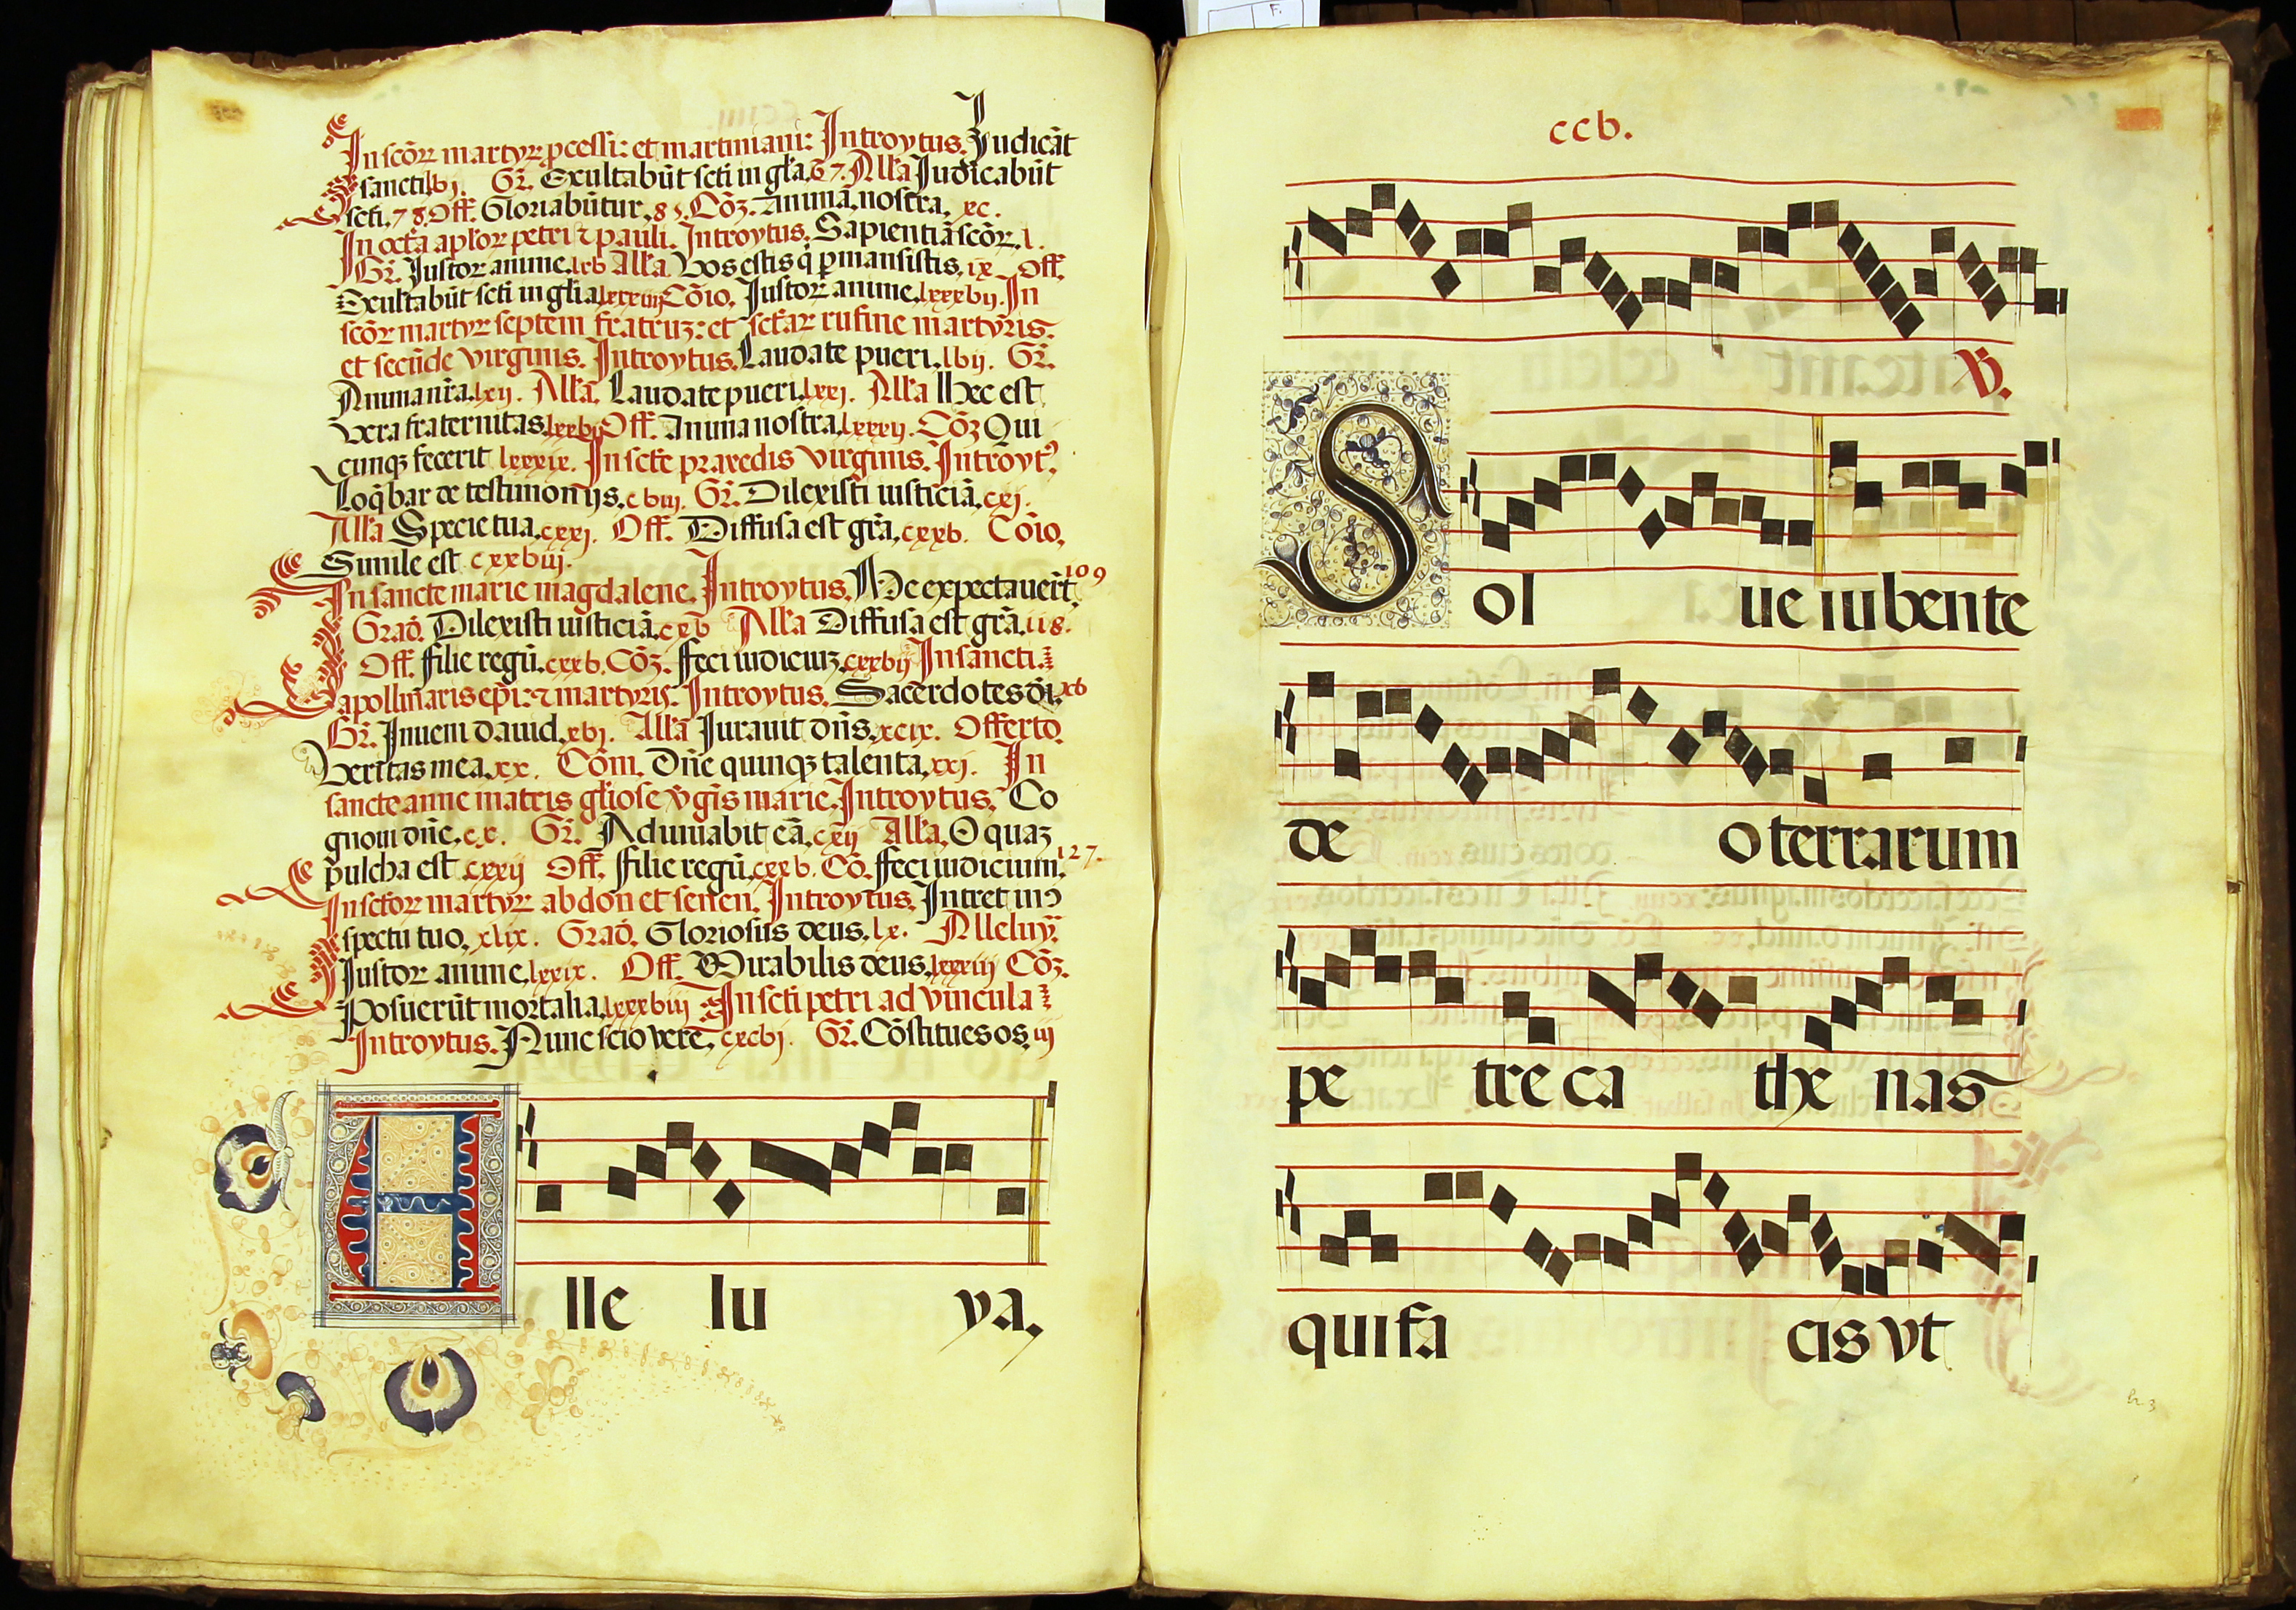 In scõꝝ martyꝝ ꝓcessi: et martiniani: Introytus. Iudicãt
sancti lvj. Gř. Exultabũt scti in gl̃a. 67. All̃a Iudicabũt
scti. 78. Off. Gloriabũtur. 85. Cõ₃. Anima nostra, xc.
In octã apl̃oꝝ petri ⁊ pauli. Introytus. Sapientiã scõꝝ. l.
Gř. Iustoꝝ anime. lxv All̃a. Vos estis q̃ ꝑmansistis. ix Off.
Exultabũt scti in gl̃ia lxxxiiij Cõio. Iustoꝝ anime. lxxxvij. In
scõꝝ martyꝝ septem fratruz: et sctãꝝ rufine martyris
et secũde virginis. Introytus. Laudate pueri. lvij. Gř.
Anima nr̃a. lxij. All̃a. Laudate pueri. lxxj. All̃a Hec est
vera fraternitas. lxxvj Off. Anima nostra. lxxxij. Cõ₃ Qui
cunq₃ fecerit lxxxix. In sctẽ praxedis virginis. Introyt⁹,
Loq̃bar de testimonijs. cviij. Gř. Dilexisti iusticiã. cxj.
All̃a Specie tua. cxxj. Off. Diffusa est gr̃a. cxxv. Cõio.
Simile est cxxviij.
In sancte marie magdalene. Introytus. Me expectauer̃t. 109
Grad̃. Dilexisti iusticiã. cxv All̃a Diffusa est gr̃a. 118.
Off. filie regũ. cxxv. Cõ₃. feci iudiciuz. cxxvij In sancti
apollinaris ep̃i: ⁊ martyris. Introytus. Sacerdotes dĩ. xcv
Gř. Inueni dauid. xvj. All̃a Iurauit dñs. xcix. Offerto.
Veritas mea. xx. Cõm. Dñe quinq₃ talenta. xxj. In
sancte anne matris gl̃iose v̾gĩs marie. Introytus. Co
gnoui dñe. cx. Gř. Adiuuabit eã. cxij All̃a. O quaz
pulchã est cxxij Off. filie regũ. cxxv. Cõ. feci iudicium. 127.
In sctõꝝ martyꝝ abdon et senen. Introytus. Intret in ɔ
spectu tuo. xlix. Grad̃. Gloriosus deus. lx. Alleluy̾.
Iustoꝝ anime. lxxix. Off. Mirabilis deus. lxxxiij Cõ₃.
Posuerũt mortalia. lxxxviij In scti petri ad vincula
Introytus. Nunc scio verẽ. cxcvj. Gř. Cõstitues os iij
A lle lu ya.
ccv.
V.
S ol ue iubente
de o terrarum
pe tre ca the nas
qui fa cis vt